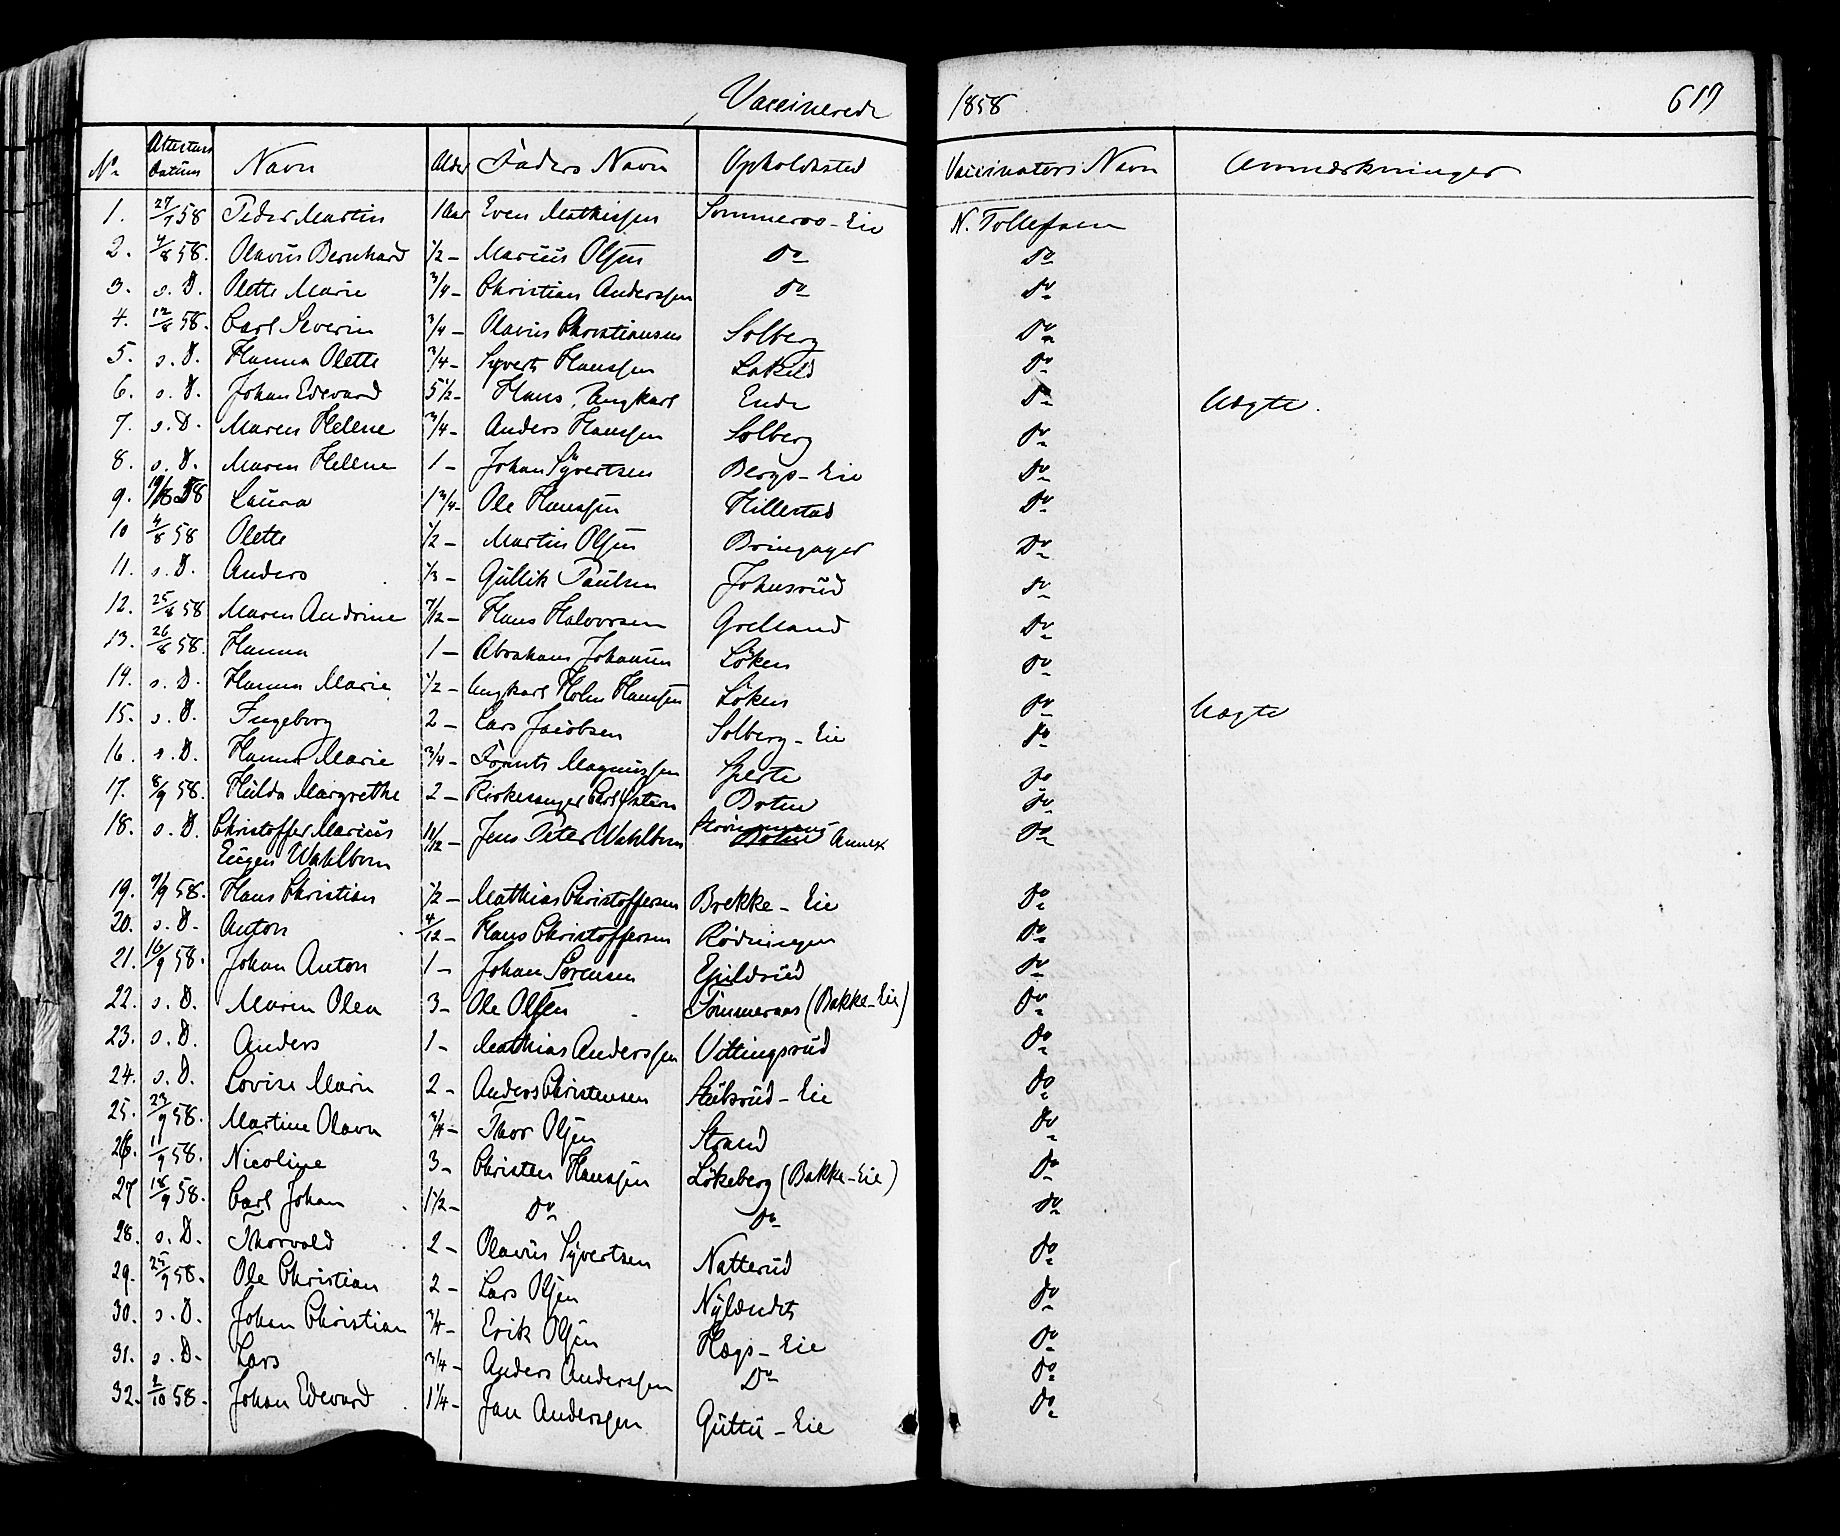 Vaccinerede 1858 617
No Attestens Datum Navn Alder Faders Navn Opholdssted Vaccinators Navn Anmærkninger
1. 27/7 58 Peder Martin 1 Aar Even Mathissen Sommeroo-Eie N. Tollefsen
2. 4/8 58. Olavus Bernhard 1/2 - Marius Olsen Do Do
3. s. D. Olette Marie 3/4 - Christian Anderssen Do Do
4. 12/8 58. Carl Severin 3/4 - Olavus Christiansen Solberg Do
5. s. D. Hanna Olette 3/4 - Syvert Hanssen Do
6. s. D. Johan Edevard 5 1/2 - Hans, Ungkarl Ende Do Uægte.
7. s. D. Maren Helene 3/4 - Anders Hanssen Solberg Do
8. s. D. Maren Helene 1 - Johan Syvertsen Bergs-Eie Do
9. 58 Laura 1 3/4 - Ole Hanssen Hillestad Do
10 4/8 58 Olette 1/2 - Martin Olsen Bringager Do
11. s. D. Anders 1/3 - Gullik Paulsen Johnsrud Do
12. 25/8 58 Maren Andrine 7/12 - Hans Halvorsen Grelland Do
13. 26/8 58. Hanna 1 - Abraham Johansen Löken Do
14. s. D. Hanna Marie 1/2 - Ungkarl Holm Hanssen Löken Do Uægte
15. s. D. Ingeborg 2 - Lars Jacobsen Solberg-Eie Do
16. s. D. Hanna Marie 3/4 - Magnussen Do
17. 8/9 58. Hulda Margrethe 2 - Kirkesanger Carl Botne Do
18. s. D. Christoffer Marius 11/12 - Jens Peter Wahlbom Annex Do
Eugen Wahlbom
19. 9/9 58. Hans Christian 1/2 - Mathias Christoffersen Brekke-Eie Do
20. s. D. Anton 4/12 - Hans Christoffersen Rødningen Do
21. 16/9 58. Johan Anton 1 - Johan Sørensen Ejulsrud Do
22. s. D. Maren Olea 3 - Ole Olsen Sommeraas (Bakke-Eie) Do
23. s. D. Anders 1 - Mathias Anderssen Vittingsrud Do
24. s. D. Lovise Marie 2 - Anders Christensen Stubsrud-Eie Do
25. 23/9 58. Martine Olava 3/4 - Thor Olsen Strand Do
26. 11/9 58. Nicoline 3 - Christen Hanssen Lökeberg (Bakke-Eie) Do
27 18/9 58. Carl Johan 1 1/2 - Do Do Do
28. s. D. Thorvald 2 - Olavus Syvertsen Natterud Do
29. 25/9 58. Ole Christian 2 - Lars Olsen Nylændet Do
30. s. D. Johan Christian 3/4 - Erik Olsen Hægs-Eie Do
31. s. D. Lars 3/4 - Anders Anderssen Do Do
32. 2/10 58. Johan Edevard 1 1/4 - Jan Anderssen Guttu-Eie Do